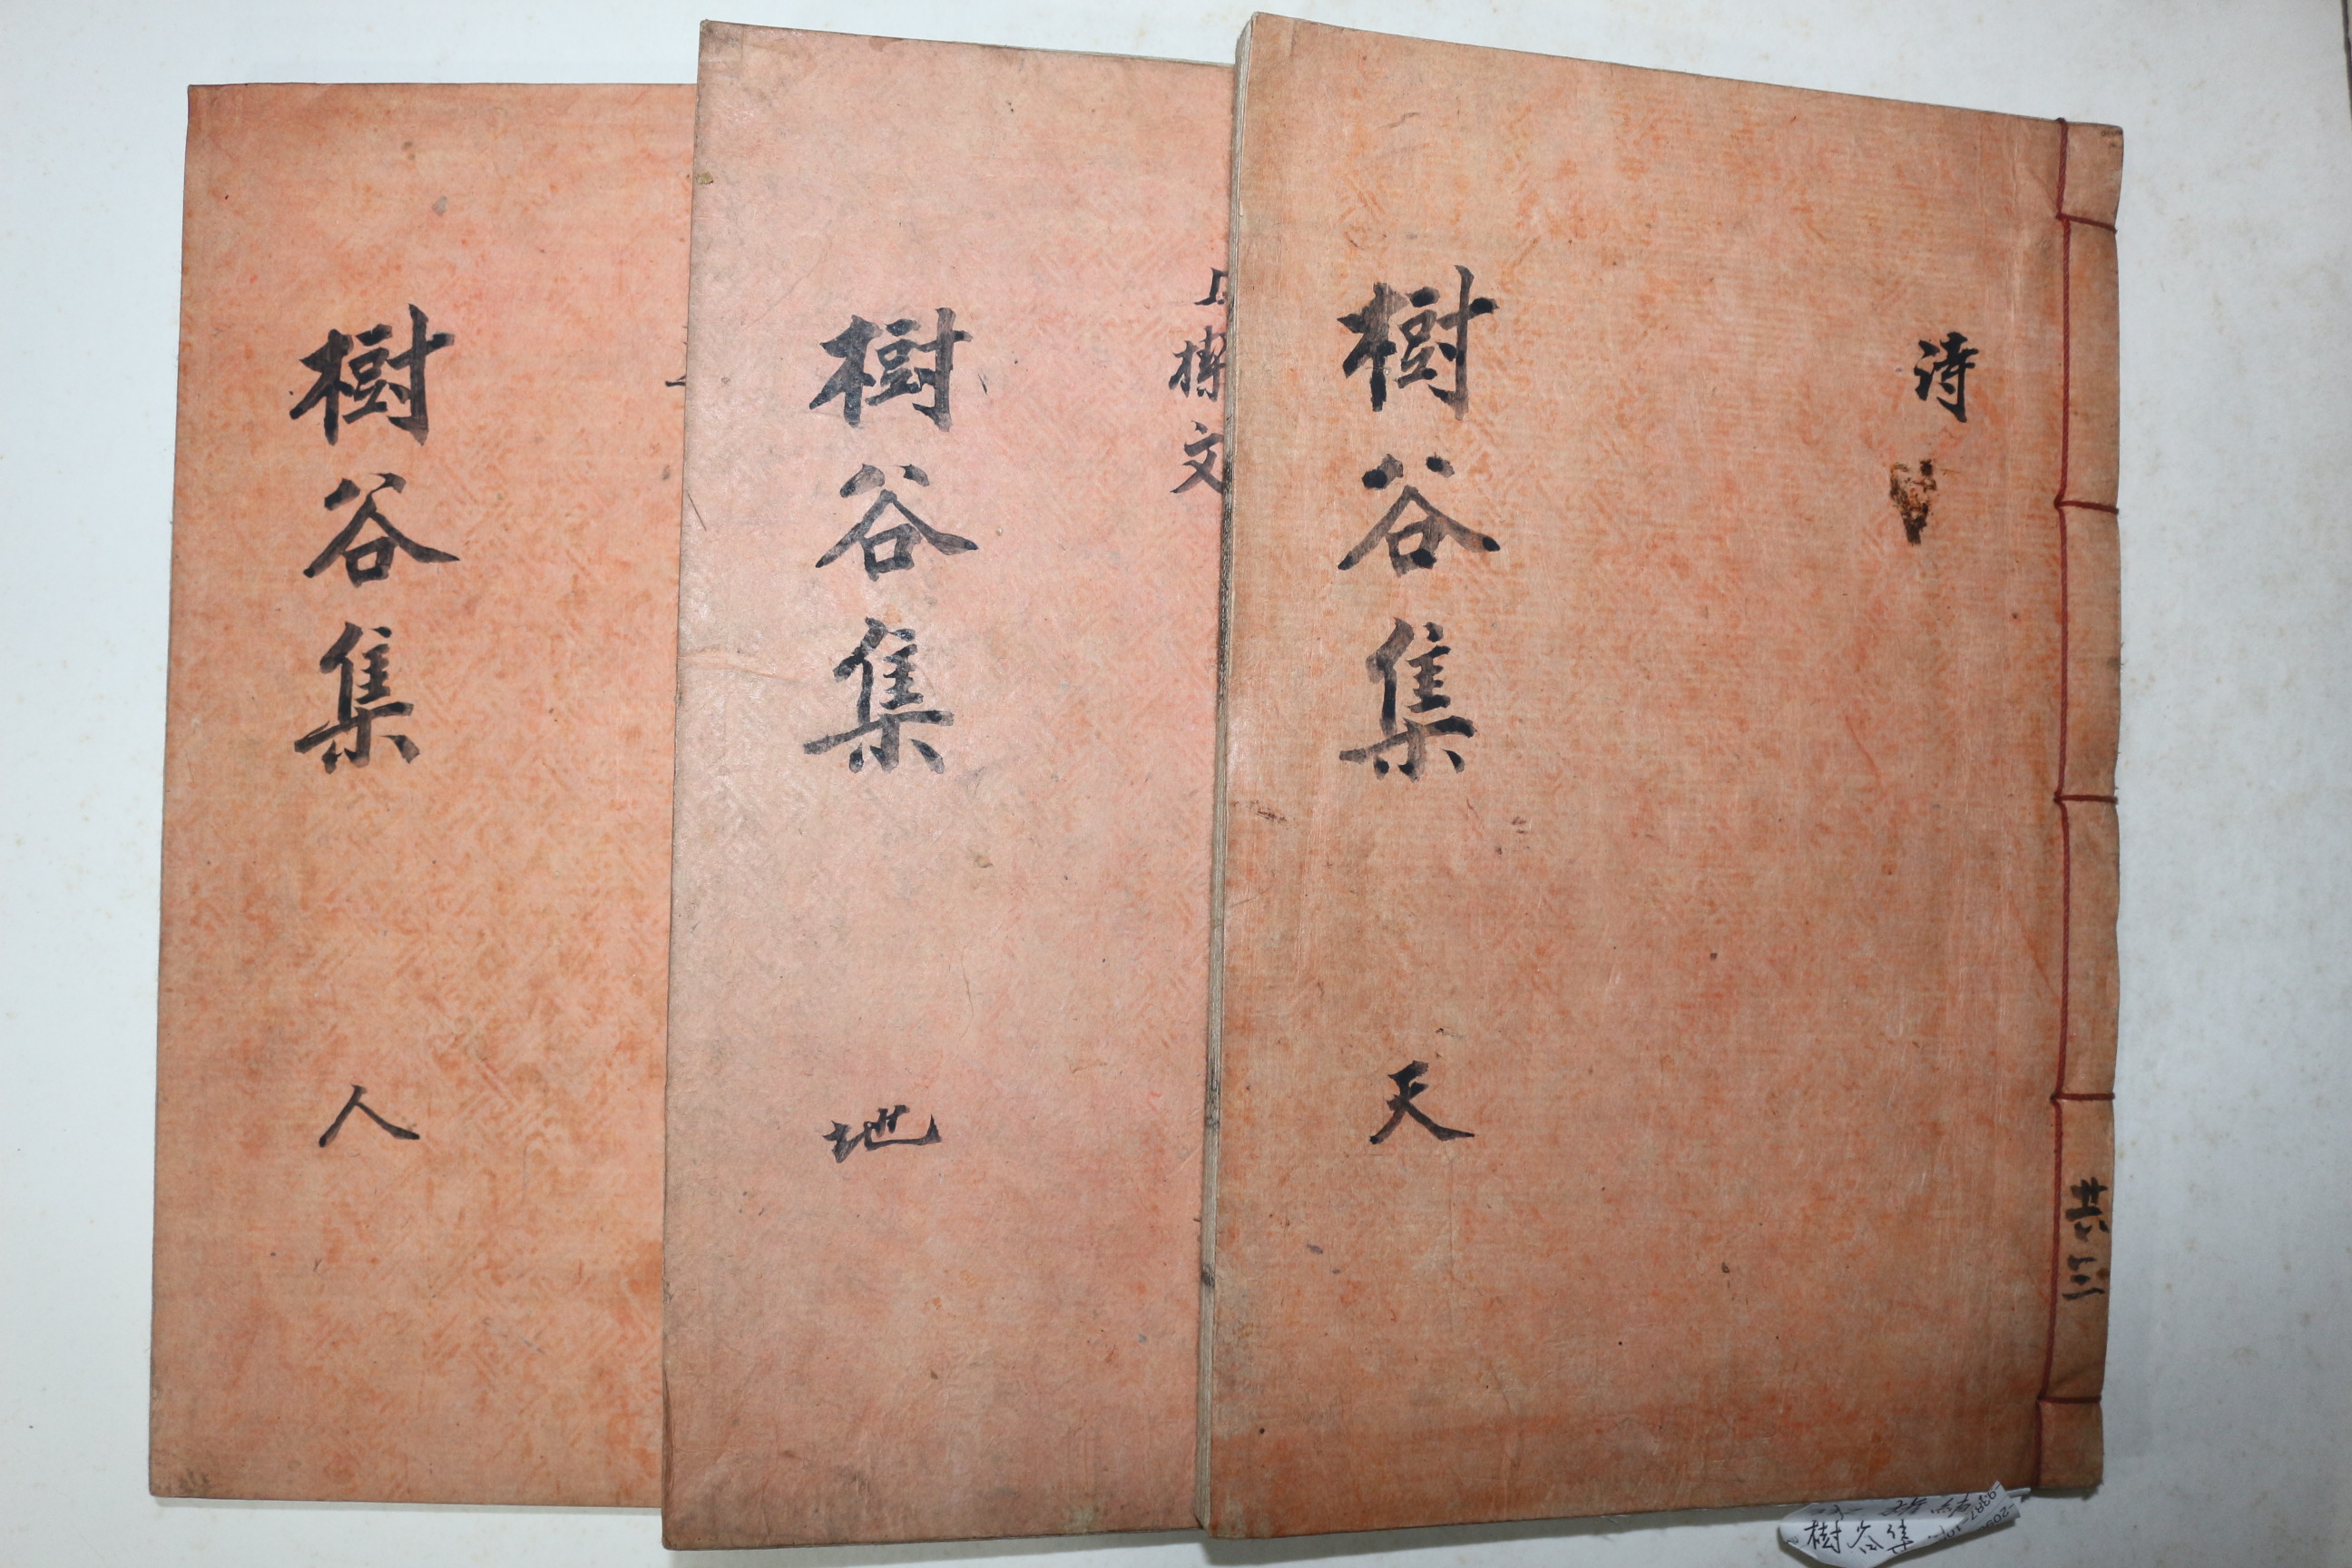 詩
樹谷集 天
共三
文
樹谷集 地
樹谷集 人
樹谷集